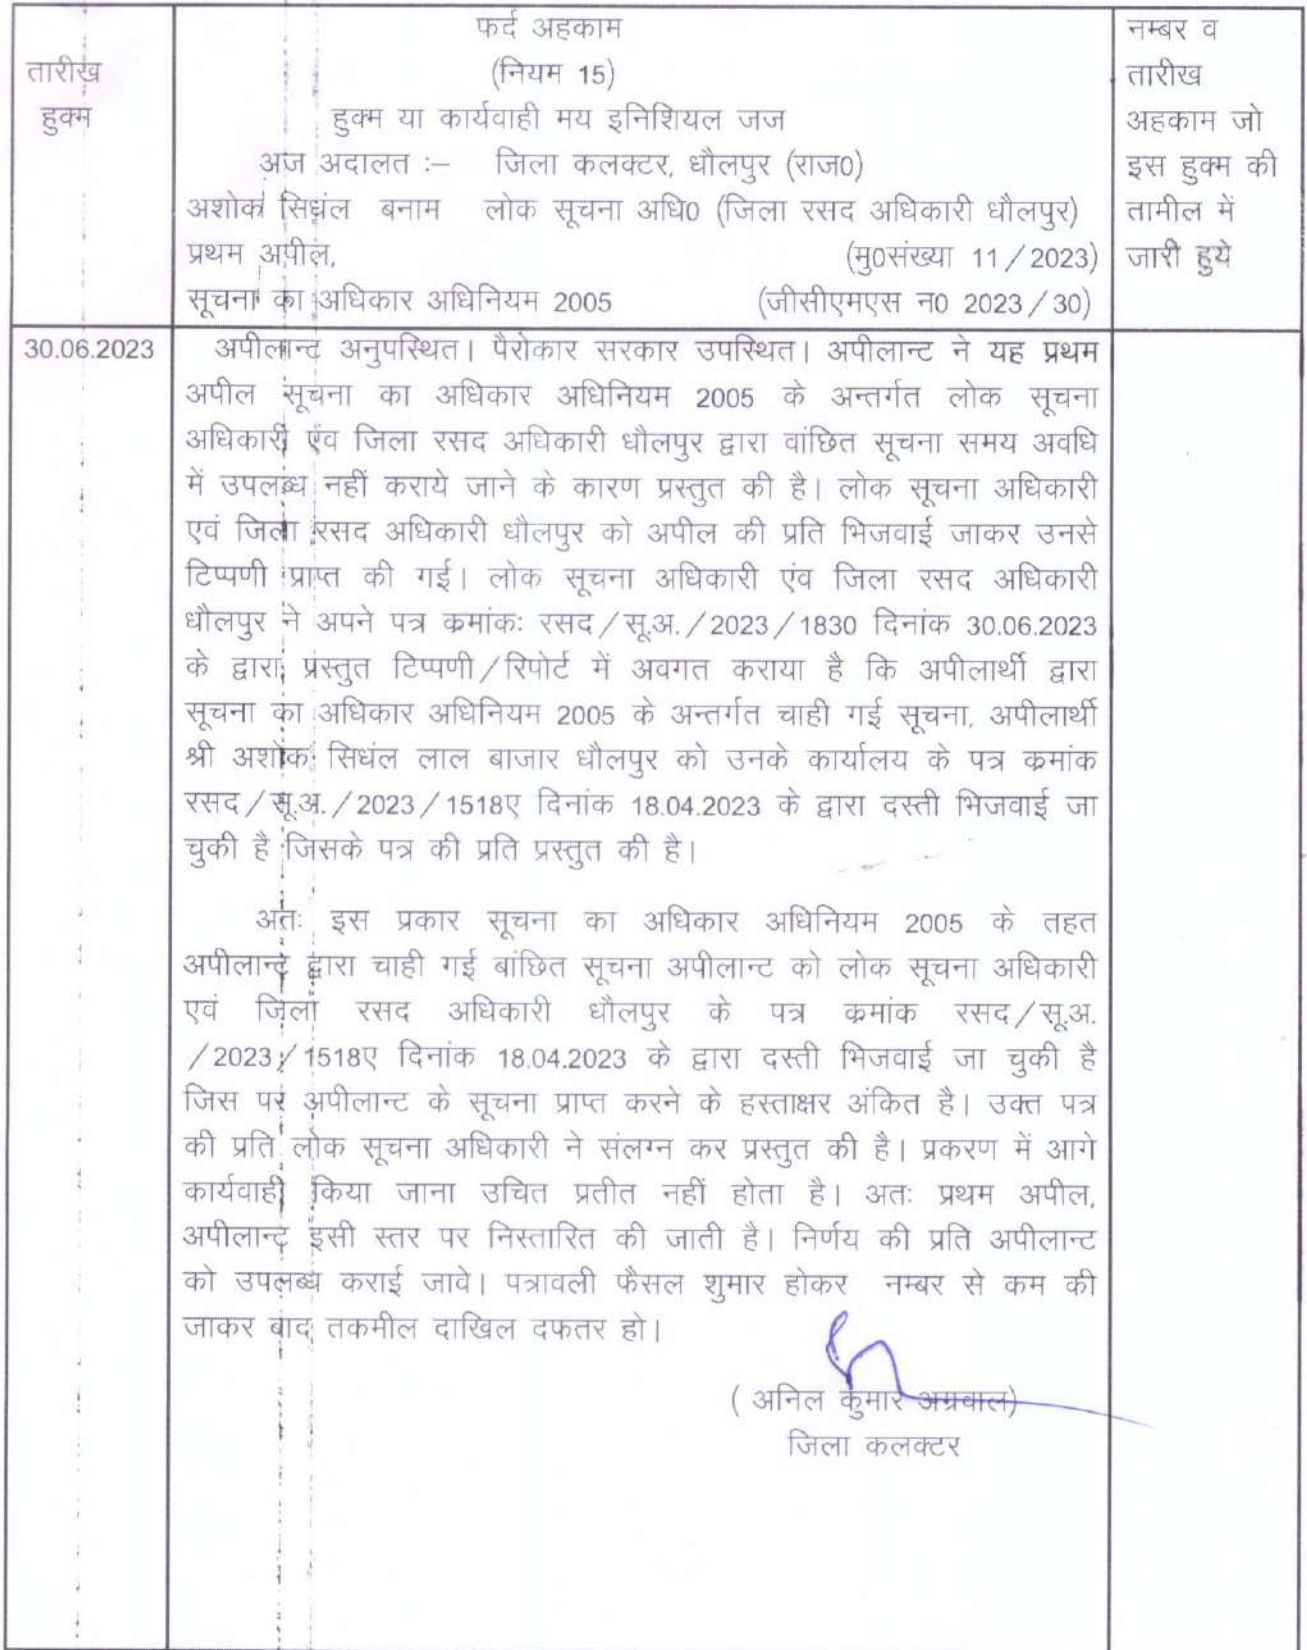 तारीख
हुक्म
फर्द अहकाम
(नियम 15)
हुक्म या कार्यवाही मय इनिशियल जज
अज अदालत :– जिला कलक्टर, धौलपुर (राज0)
अशोक सिधंल बनाम लोक सूचना अधि0 (जिला रसद अधिकारी धौलपुर)
प्रथम अपील, (मु0संख्या 11/2023)
सूचना का अधिकार अधिनियम 2005 (जीसीएमएस न0 2023/30)
नम्बर व
तारीख
अहकाम जो
इस हुक्म की
तामील में
जारी हुये
30.06.2023
अपीलान्ट अनुपस्थित। पैरोकार सरकार उपस्थित। अपीलान्ट ने यह प्रथम
अपील सूचना का अधिकार अधिनियम 2005 के अन्तर्गत लोक सूचना
अधिकारी एंव जिला रसद अधिकारी धौलपुर द्वारा वांछित सूचना समय अवधि
में उपलब्ध नहीं कराये जाने के कारण प्रस्तुत की है। लोक सूचना अधिकारी
एवं जिला रसद अधिकारी धौलपुर को अपील की प्रति भिजवाई जाकर उनसे
टिप्पणी प्राप्त की गई। लोक सूचना अधिकारी एंव जिला रसद अधिकारी
धौलपुर ने अपने पत्र कमांकः रसद/सू.अ./2023/1830 दिनांक 30.06.2023
के द्वारा प्रस्तुत टिप्पणी/रिपोर्ट में अवगत कराया है कि अपीलार्थी द्वारा
सूचना का अधिकार अधिनियम 2005 के अन्तर्गत चाही गई सूचना, अपीलार्थी
श्री अशोक सिधंल लाल बाजार धौलपुर को उनके कार्यालय के पत्र कमांक
रसद/सू.अ./2023/1518ए दिनांक 18.04.2023 के द्वारा दस्ती भिजवाई जा
चुकी है जिसके पत्र की प्रति प्रस्तुत की है।
अतः इस प्रकार सूचना का अधिकार अधिनियम 2005 के तहत
अपीलान्ट द्वारा चाही गई बांछित सूचना अपीलान्ट को लोक सूचना अधिकारी
एवं जिला रसद अधिकारी धौलपुर के पत्र कमांक रसद/सू.अ.
/2023/1518ए दिनांक 18.04.2023 के द्वारा दस्ती भिजवाई जा चुकी है
जिस पर अपीलान्ट के सूचना प्राप्त करने के हस्ताक्षर अंकित है। उक्त पत्र
की प्रति लोक सूचना अधिकारी ने संलग्न कर प्रस्तुत की है। प्रकरण में आगे
कार्यवाही किया जाना उचित प्रतीत नहीं होता है। अतः प्रथम अपील,
अपीलान्ट इसी स्तर पर निस्तारित की जाती है। निर्णय की प्रति अपीलान्ट
को उपलब्ध कराई जावे। पत्रावली फैसल शुमार होकर नम्बर से कम की
जाकर बाद तकमील दाखिल दफतर हो।
( अनिल कुमार अग्रवाल)
जिला कलक्टर